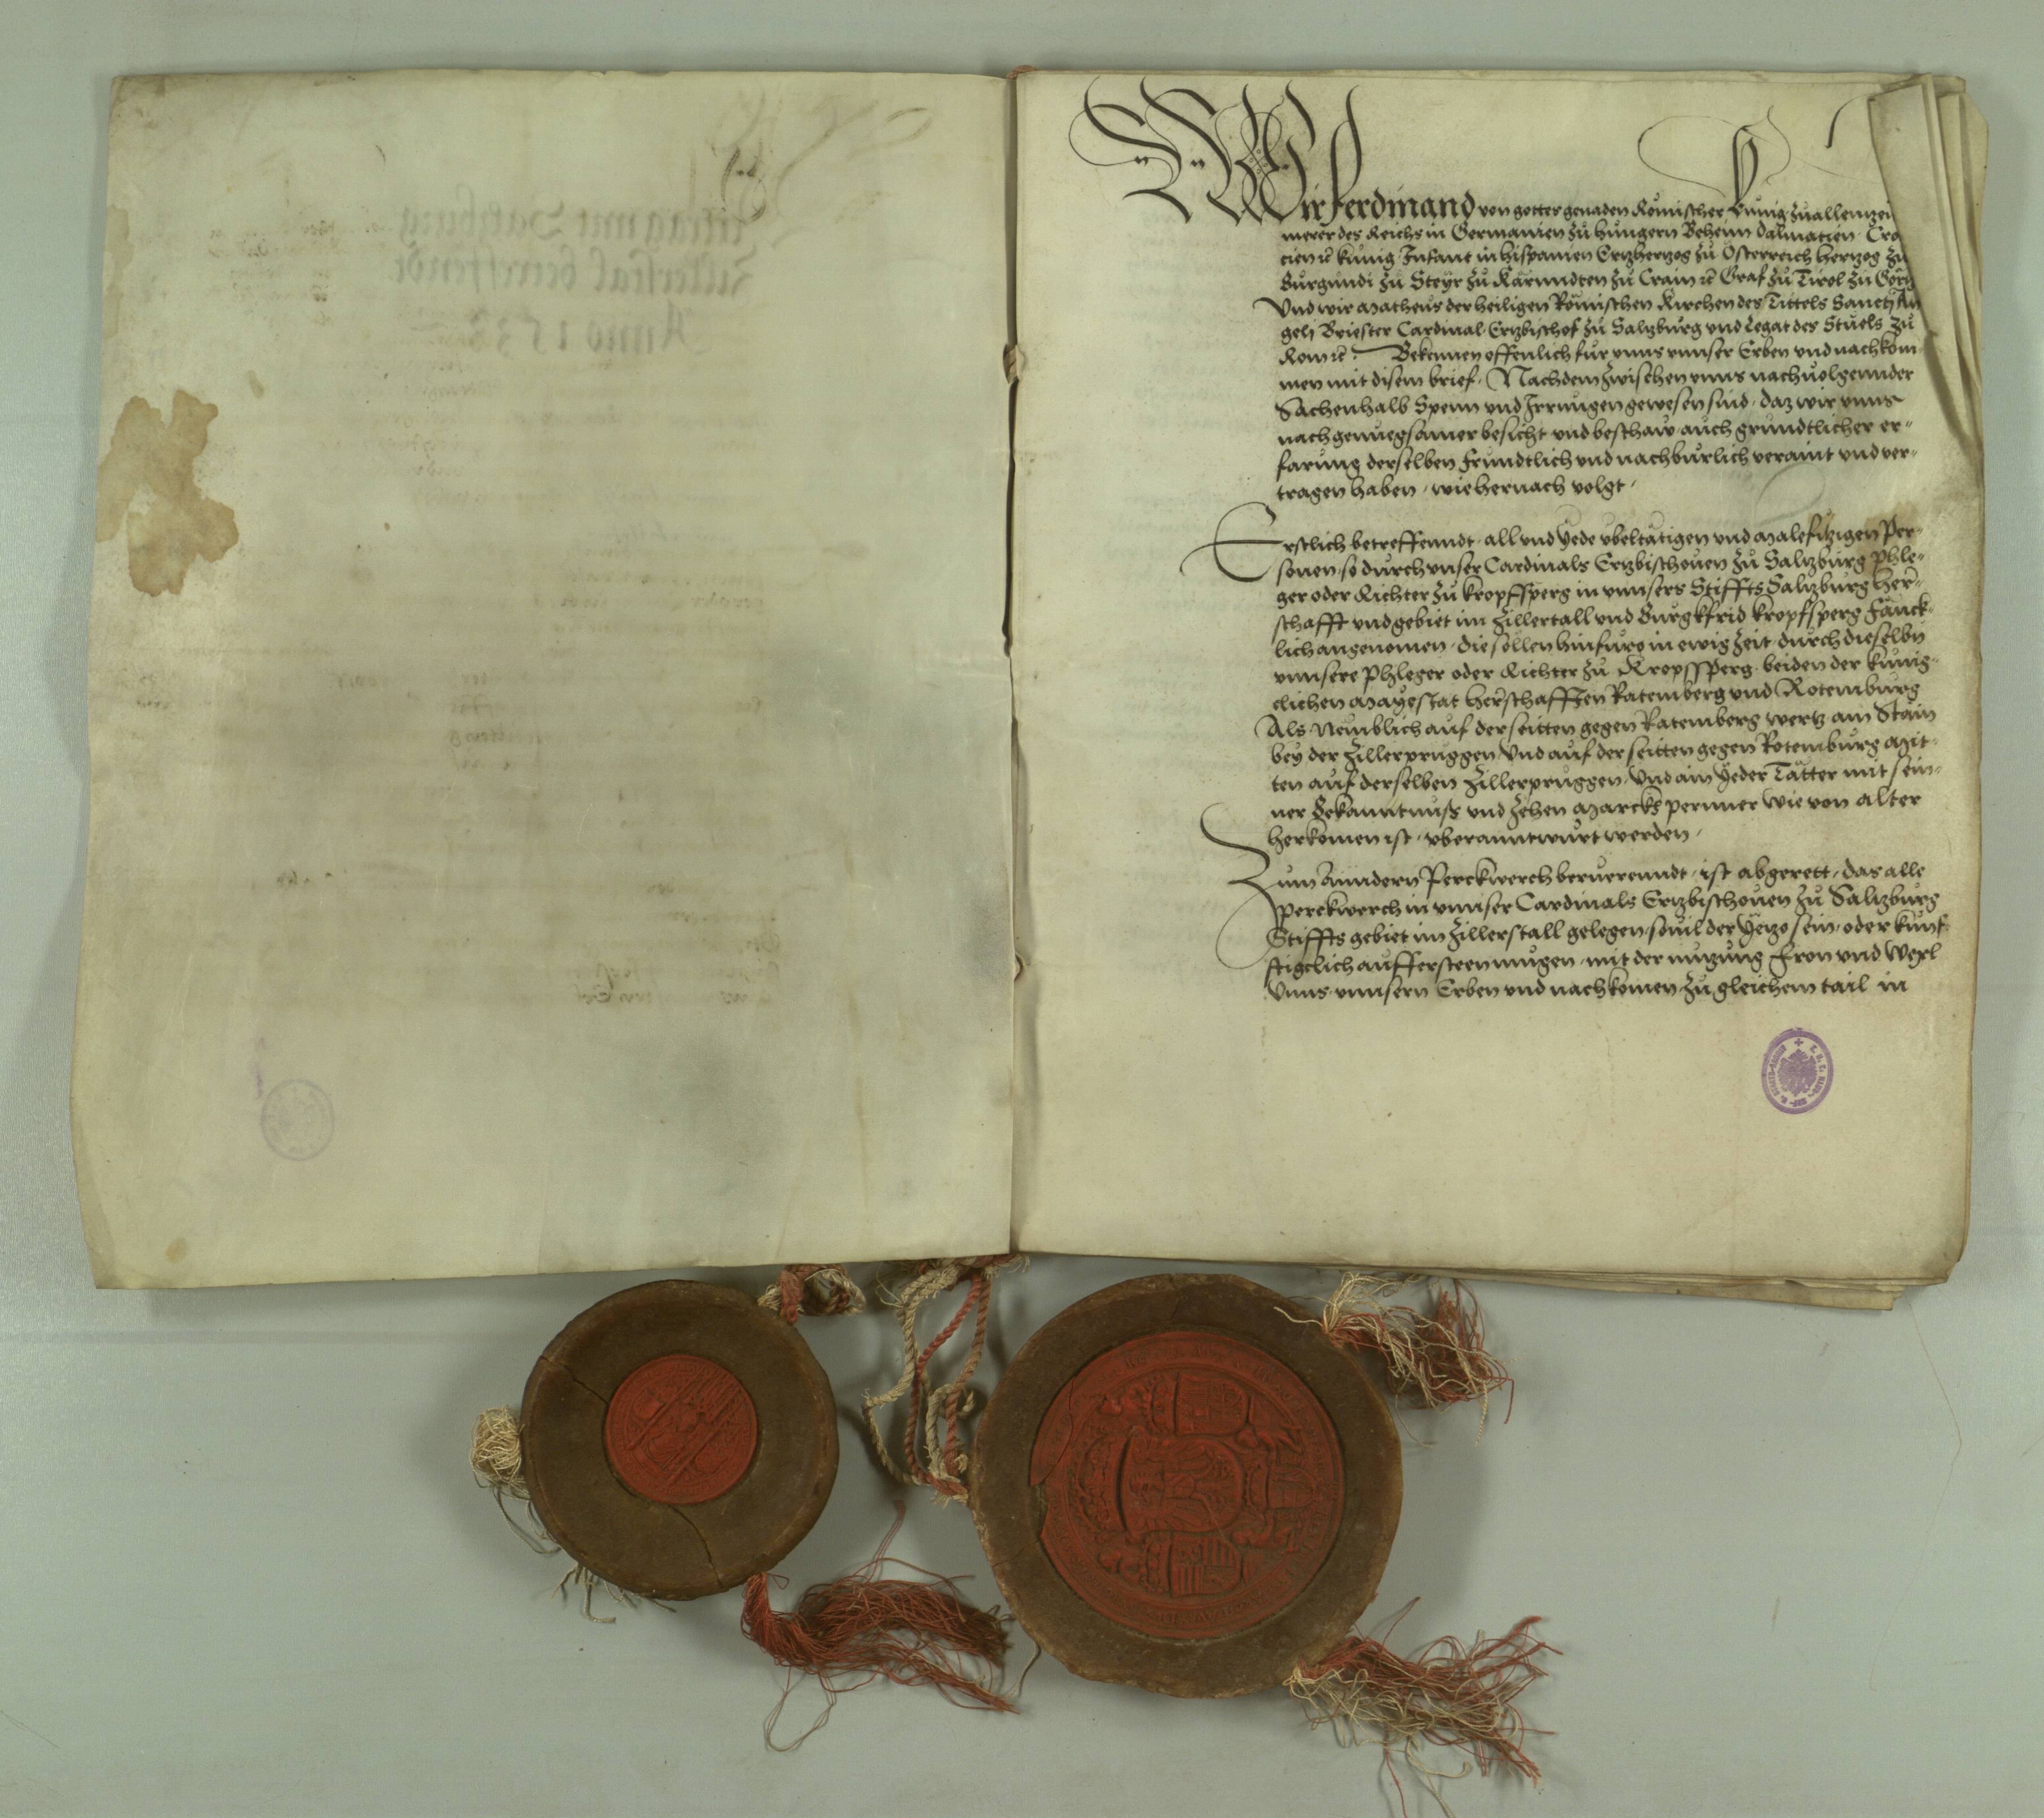 Wir Ferdinand von gottes genaden Römischer Kunig zuallenntzei
merer des Reichs in Germanien zu hungern Beheim dalmatien Cro
cien ꝛc kunig Infant in hispanien Ertzhertzog zu Osterreich hertzog zu
Burgundi zu Steyr zu Kärnndten zu Crain ꝛc Graf zu Tirol zu Görtz
Vnd wir Matheus der heiligen Römischen Kirchen des Tittels Sanct An
geli Briester Cardinal Ertzbischof zu Saltzburg vnd Legat des Stuels zu
Rom ꝛc. Bekennen offenlich fur vnns vnnser Erben vnd nachkom
men mit disem brief. Nachdem zwischen vnns nachuolgennder
Sachenhalb Spenn vnd Irrnugen gewesen sind, daz wir vnns
nach genuegsamer besicht vnd beschaw auch gründtlicher er-
farung derselben frundtlich vnd nachburlich veraint vnd ver-
tragen haben, wie hernach volgt.
Erstlich betreffenndt, all vnd yede vbeltätigen vnd malefitzigen Per-
sonen, so durch vnser Cardinals Ertzbischouen zu Saltzburg phle-
ger oder Richter zu kropfsperg in vnnsers Stiffts Saltzburg her-
schafft vnd gebiet im Zillertall vnd Burgkfrid kropfsperg fänck-
lich angenomen, die sollen hinfuro in ewig Zeit, durch dieselbn
vnnsere phleger oder Richter zu Kropfsperg, beiden der kunig-
clichen Mayestat herschafften Ratemberg vnd Rotemburg
Als Nemblich auf der seitten gegen Ratemberg wertz am Stain
bey der Zillerpruggen, Vnd auf der seitten gegen Rotemburg Mit-
ten auf derselben Zillerpruggen, Vnd ain yeder Tätter mit sein-
ner Bekanntnuss vnd Zehen Marckh perner wie von alter
herkomen ist, vberanntwurt werden.
Zum Anndern Perckwerch berüerenndt, ist abgerett, das alle
Perckwerch in vnnser Cardinals Ertzbischouen zu Saltzburg
Stiffts gebiet im Zillerstall gelegen, souil der yetzo sein, oder kunf-
tigclich auffersteen mugen, mit der nutzung Fron vnd Wexl
Vnns vnnsern Erben vnd nachkomen, zu gleichem tail in